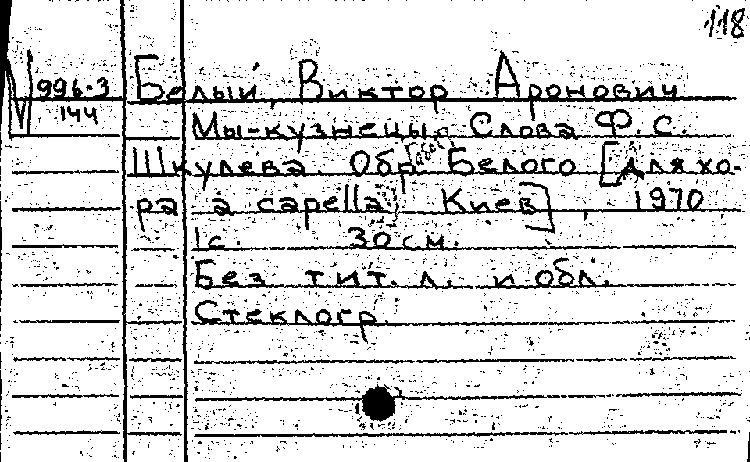 118
N 996-3
144
Белый, Виктор Аронович
Мы-кузнецы. Слова Ф. С.
Шкулева. Обр. Белого [Для хо-
ра a capella] Киев], 1970
1 с. 30 см.
Без тит. л. и обл.
Стеклогр.